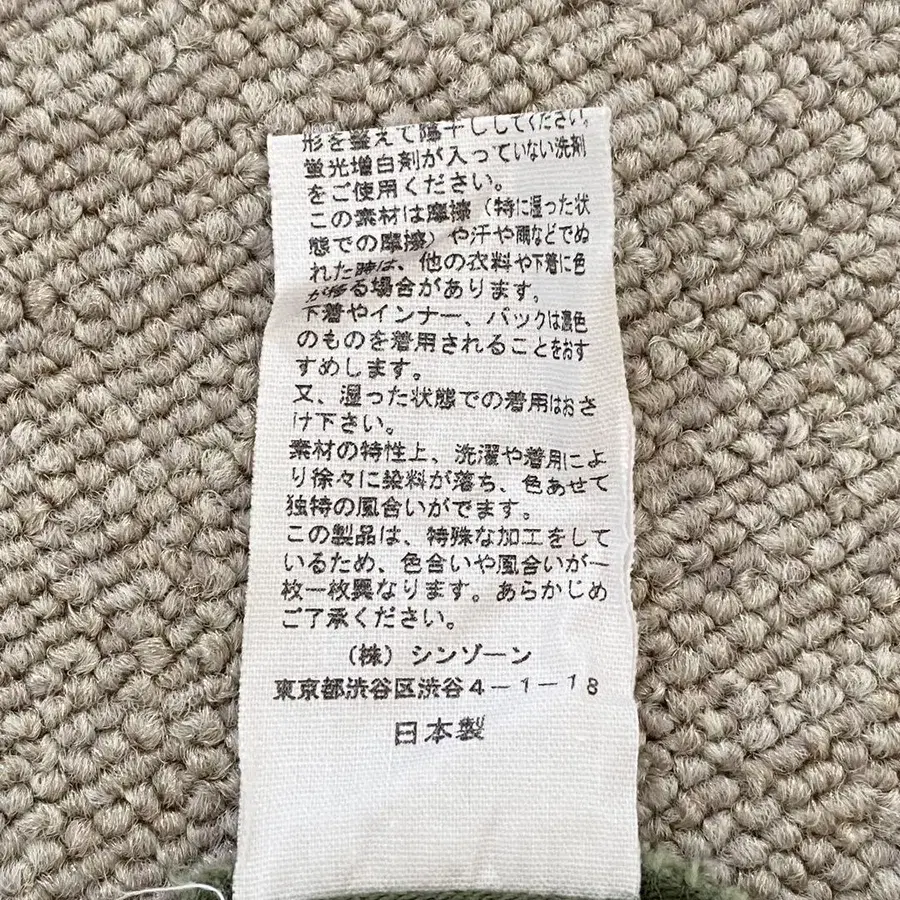 形を整えて陰干ししてください。
蛍光増白剤が入っていない洗剤
をご使用ください。
この素材は摩擦（特に湿った状
態での摩擦）や汗や雨などでぬ
れた時は、他の衣料や下着に色
が移る場合があります。
下着やインナー、バックは濃色
のものを着用されることをおす
すめします。
又、湿った状態での着用はおさ
け下さい。
素材の特性上、洗濯や着用によ
り徐々に染料が落ち、色あせて
独特の風合いがでます。
この製品は、特殊な加工をして
いるため、色合いや風合いが一
枚一枚異なります。あらかじめ
ご了承ください。
（株）シンゾーン
東京都渋谷区渋谷４－１－１８
日本製